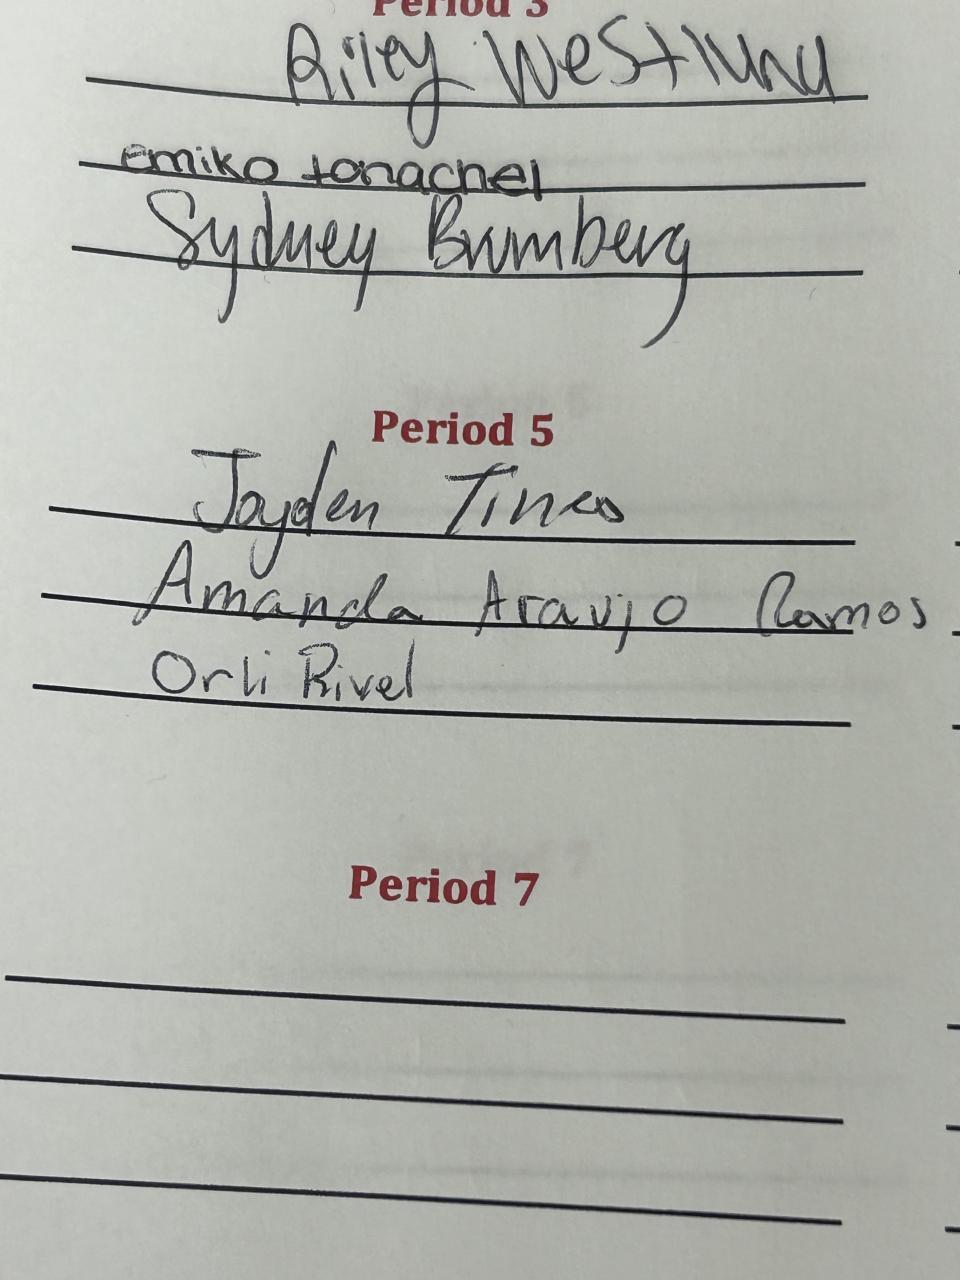 Period 3
Riley Westlund
emiko tonachel
Sydney Brumberg
Period 5
Jayden Tineo
Amanda Araujo Ramos
Orli Rivel
Period 7